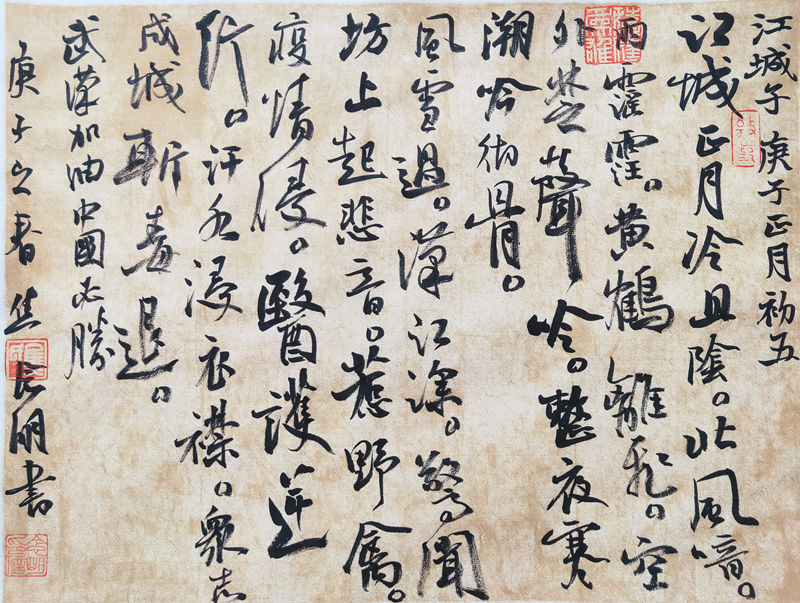 江城子 庚子正月初五
江城正月冷且陰。北風喑。
雨霪霪。黄鶴離飛。空
外楚聲吟。整夜寒
潮吟彻骨。
風雪過。漢江深。驚聞
坊上起悲音。惹野禽。
疫情侵。醫護逆
行。汗水浸衣襟。衆志
成城斬毒退。
武漢加油中國必勝
庚子之春 明書